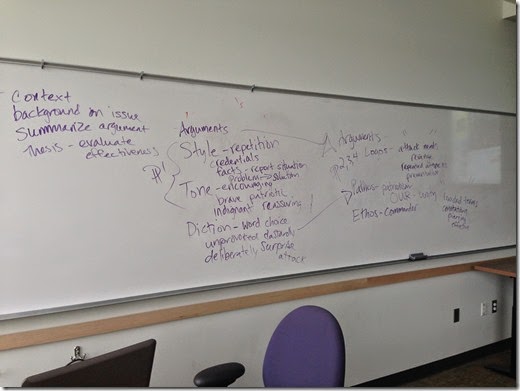 Context
background on issue
Summarize argument
thesis - evaluate
effectiveness
's
Arguments
Style - repetition
credentials
facts - report situation
problem → solution
Tone - encouraging
brave patriotic
indignant reassuring
Diction - word choice
unprovoked dastardly
deliberately surprise
attack
Arguments
Logos -
Pathos - patriotism
our -
loaded terms
Ethos - commander